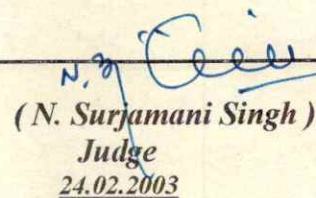 ( N. Surjamani Singh )
Judge
24.02.2003